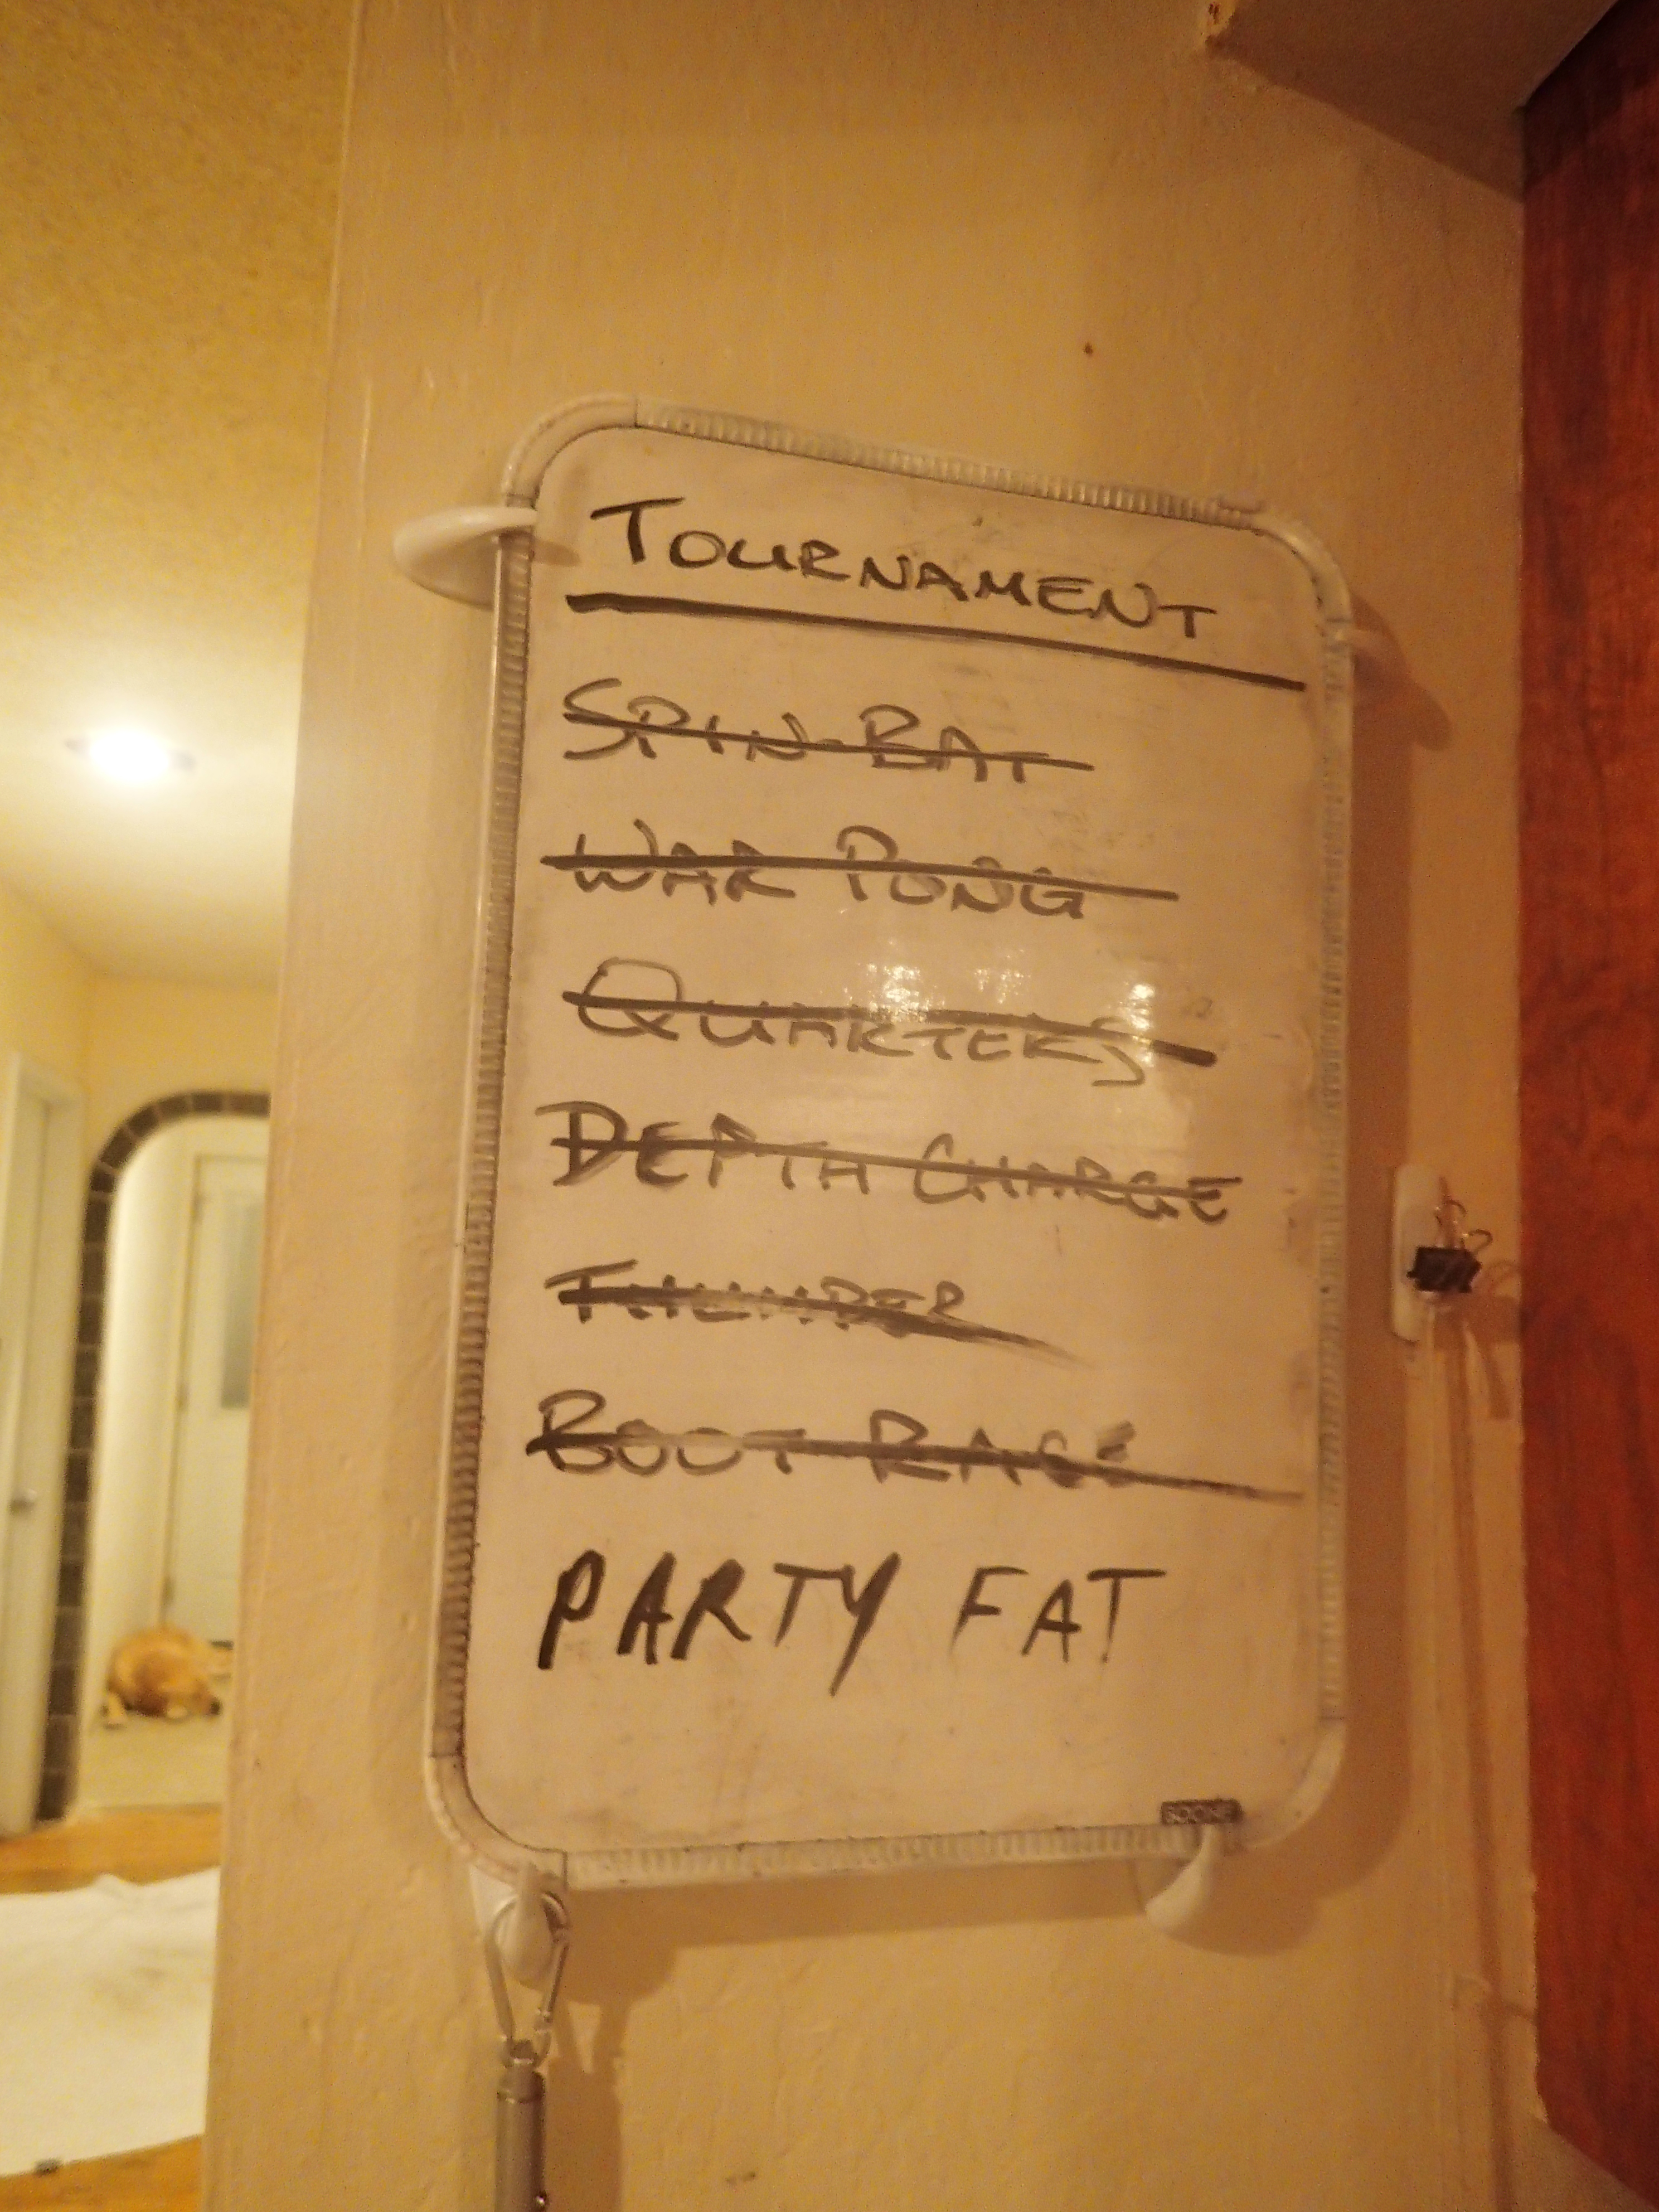 TOURNAMENT
SPIN BAT
WAR PONG
QUARTERS
DEPTH CHARGE
THUNDER
BOOT RACE
PARTY FAT
BOONE